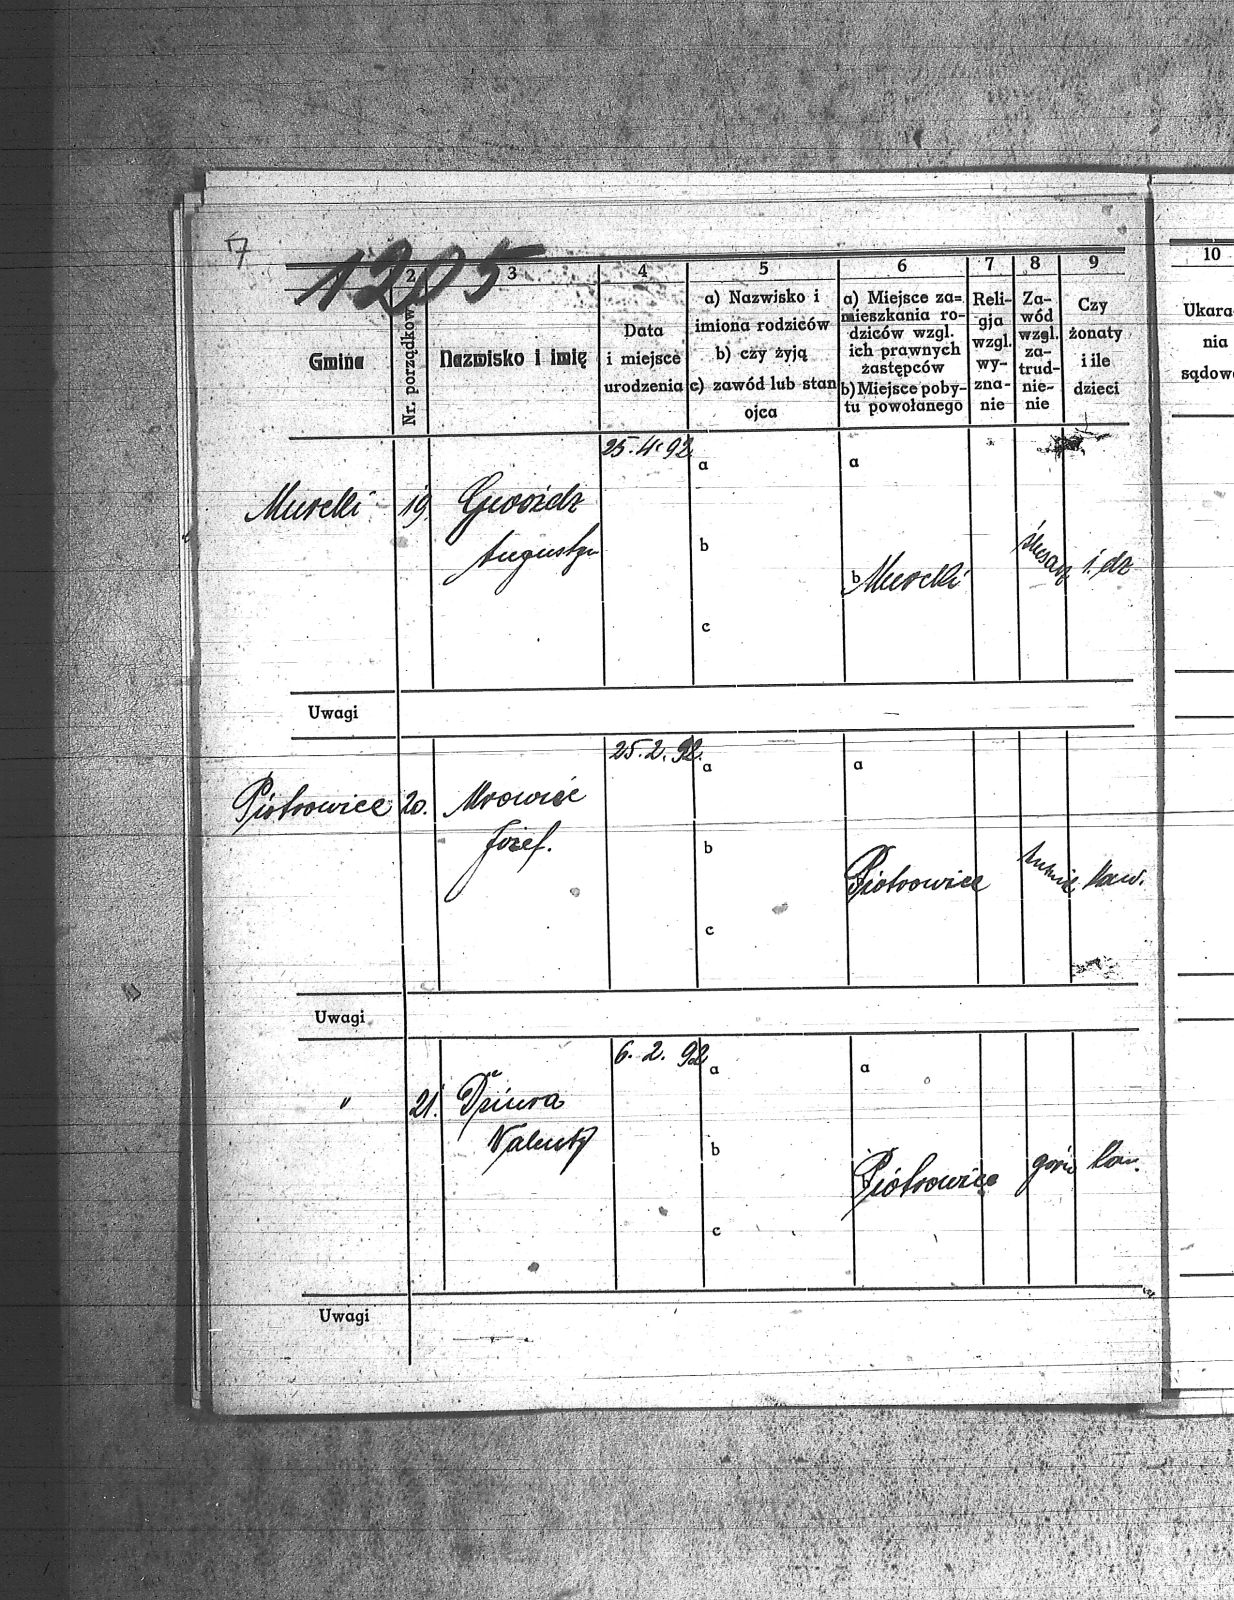 7
1205
2 3 4 5 6 7 8 9 10
Gmina
Nr. porządkow
Nazwisko i imię
Data
i miejsce
urodzenia
a) Nazwisko i
imiona rodziców
b) czy żyją
c) zawód lub stan
ojca
a) Miejsce za-
mieszkania ro-
dziców wzgl.
ich prawnych
zastępców
b) Miejsce poby-
tu powołanego
Reli-
gja
wzgl.
wy-
zna-
nie
Za-
wód
wzgl.
za-
trud-
nie-
nie
Czy
żonaty
i ile
dzieci
Ukara-
nia
sądowe
25.4.92
a a
Murcki 19. Gwoździ
Augustyn
b
b Murcki ślusarz 1. dz
c
Uwagi
25.2.92.
a a
Piotrowice 20. Mrowiec
Józef.
b
Piotrowice kaw.
c
Uwagi
6. 2. 92
a a
" 21. Dziura
b
Piotrowice górn kaw.
c
Uwagi